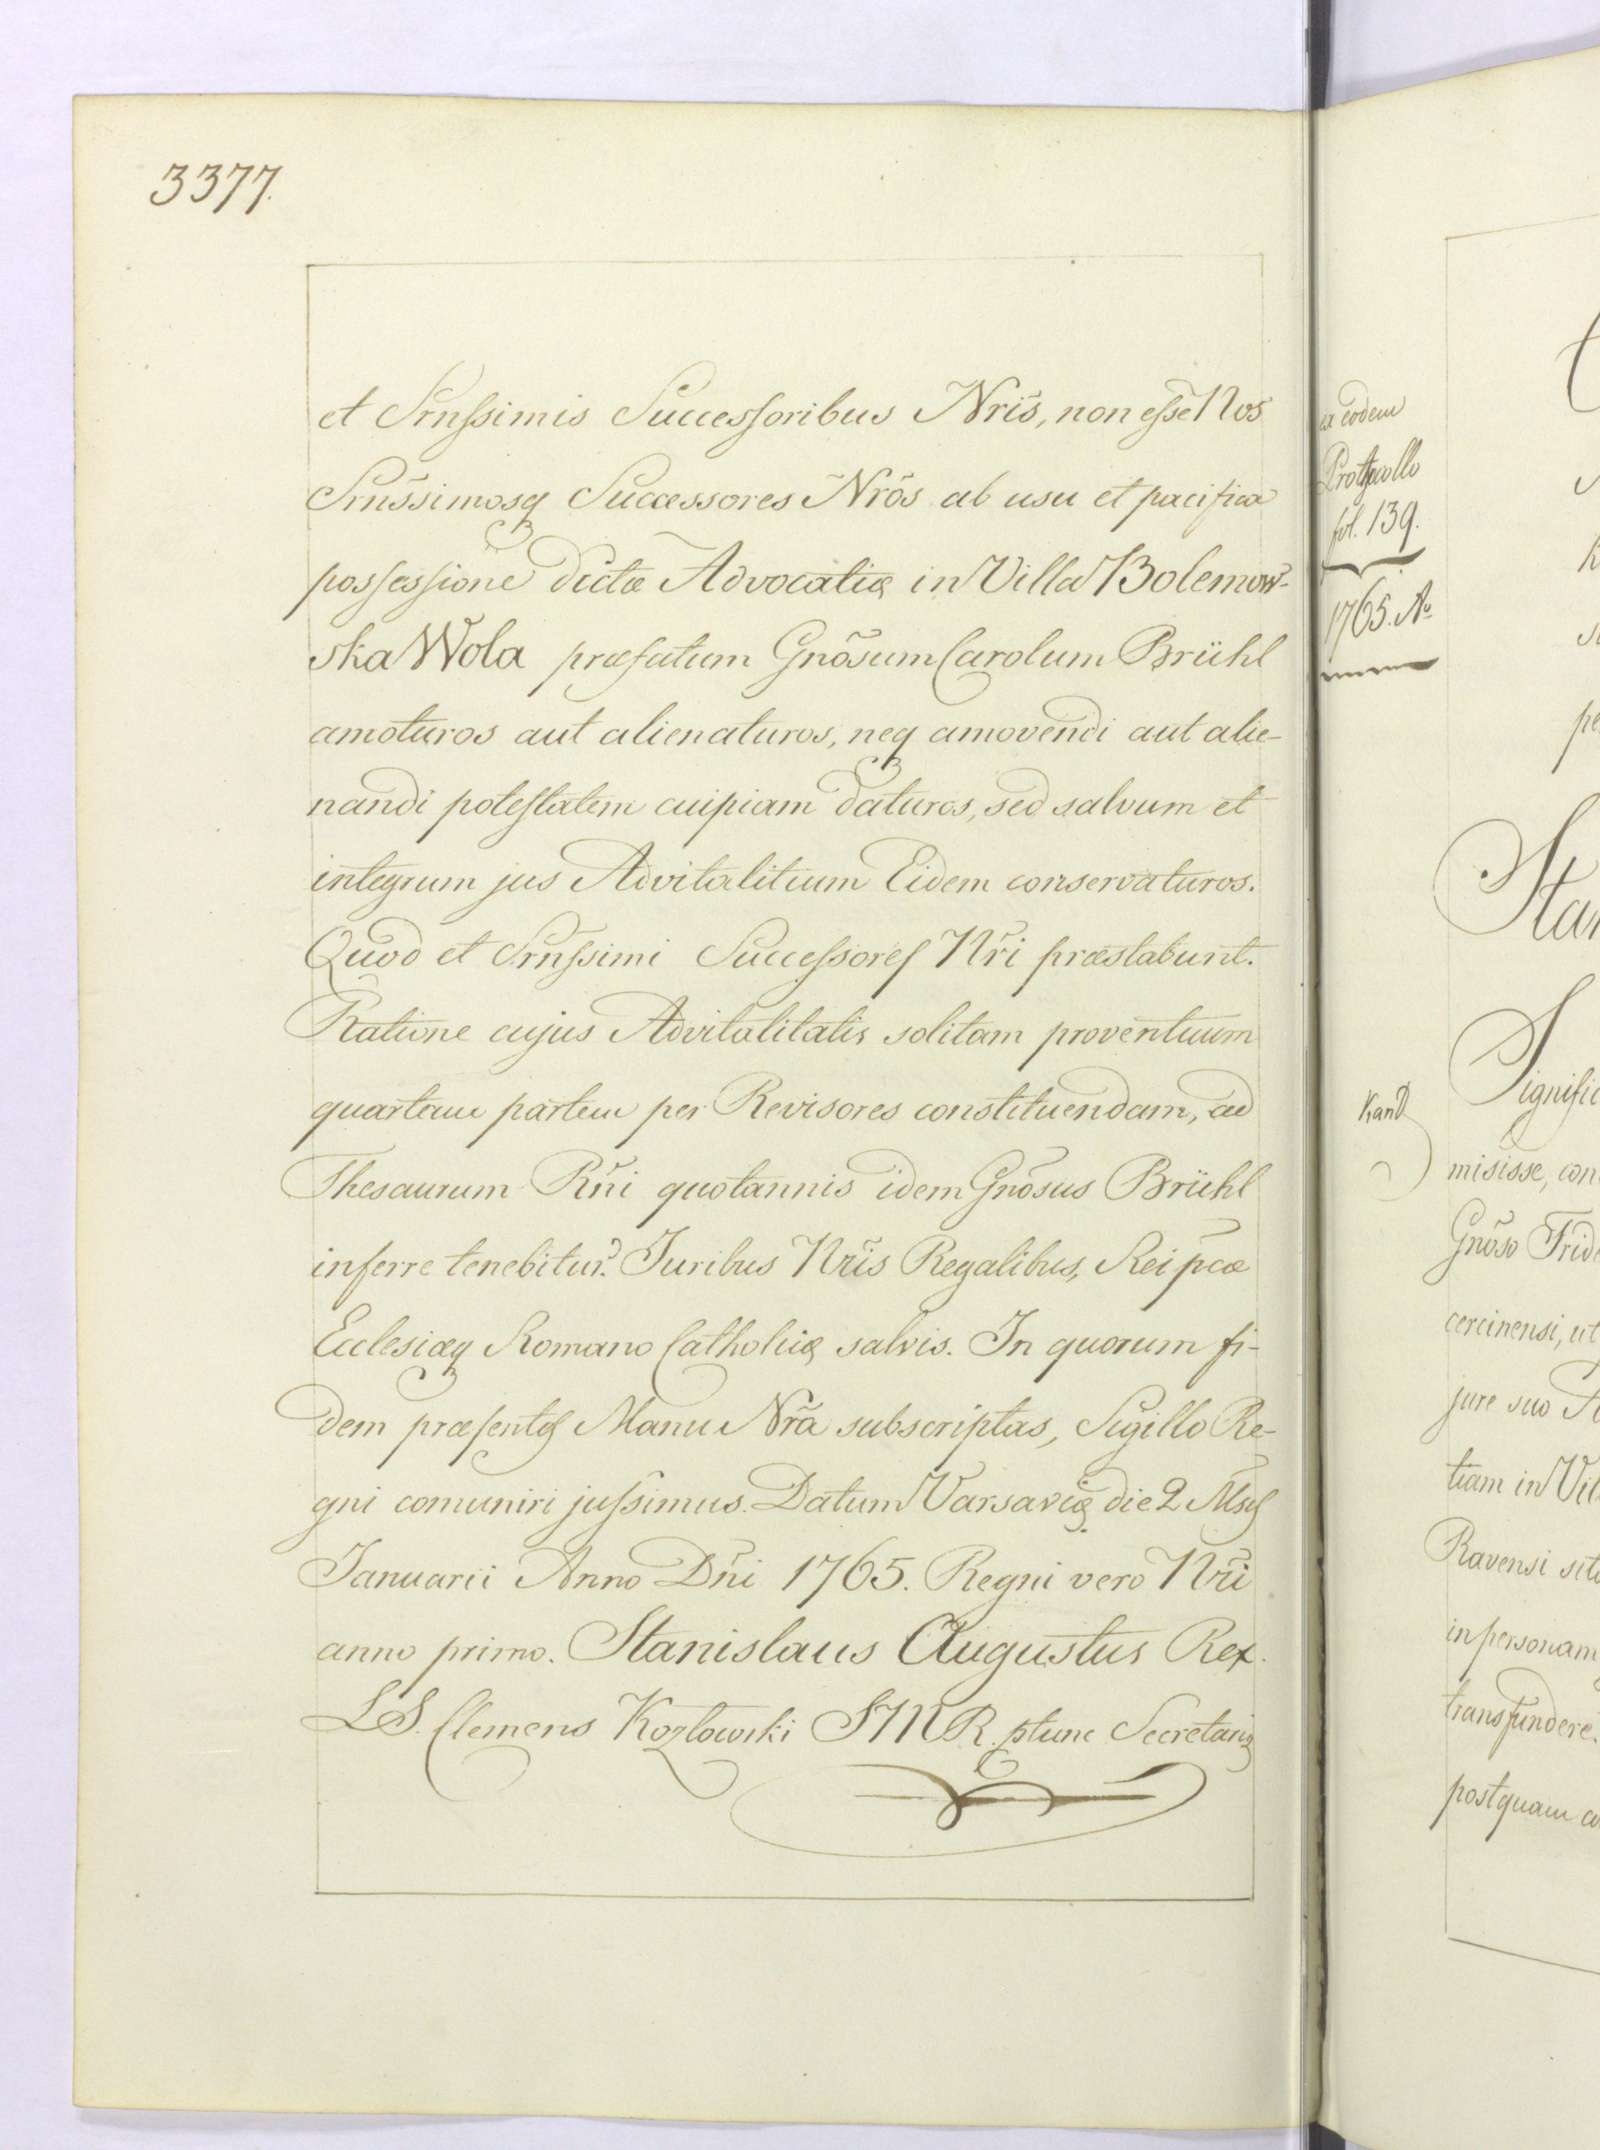 3377.
et Srnssimis Successoribus Nrĩs, non esse Nos
Srnssimosq Successores Nrõs ab usu et pacifica
possessione dictæ Advocatiæ in Villa Bolemow-
ska Wola præfatum Gnõsum Carolum Brühl
amoturos aut alienaturos, neq amovendi aut alie-
nandi potestatem cuipiam daturos, sed salvum et
integrum jus Advitalitium Eidem conservaturos.
Quod et Srnssimi Successores Nrĩ præstabunt.
Ratione cujus Advitalitatis solitam proventuum
quartam partem per Revisores constituendam, ad
Thesaurum Rñi quotannis idem Gnõsus Brühl
inferre tenebitur. Juribus Nrĩs Regalibus, Reipcæ
Ecclesiæq Romano Catholicæ salvis. In quorum fi-
dem præsentes Manu Nrã subscriptas, Sigillo Re-
gni comuniri jussimus. Datum Varsaviæ die 2 Msis
Januarii Anno Dñi 1765. Regni vero Nrĩ
anno primo. Stanislaus Augustus Rex.
LS. Clemens Kozlowski SMR. ptunc Secretariq
ex eodem
Prothocollo
fol. 139.
1765. Ao
Kand
Stan
Signific
misisse, con
Gnõso Frid
cercinensi, ut
jure suo
tiam in Vil
Ravensi sit
in personam
transfundere.
postquam